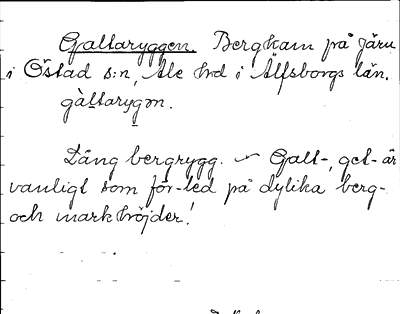 Galtaryggen. Bergkam på Järn
i Östad s:n, Ale hd i Älfsborgs län.
gàltarygən.
Lång bergrygg. ~ Galt-, get- är
vanligt som för-led på dylika berg-
och markhöjder!